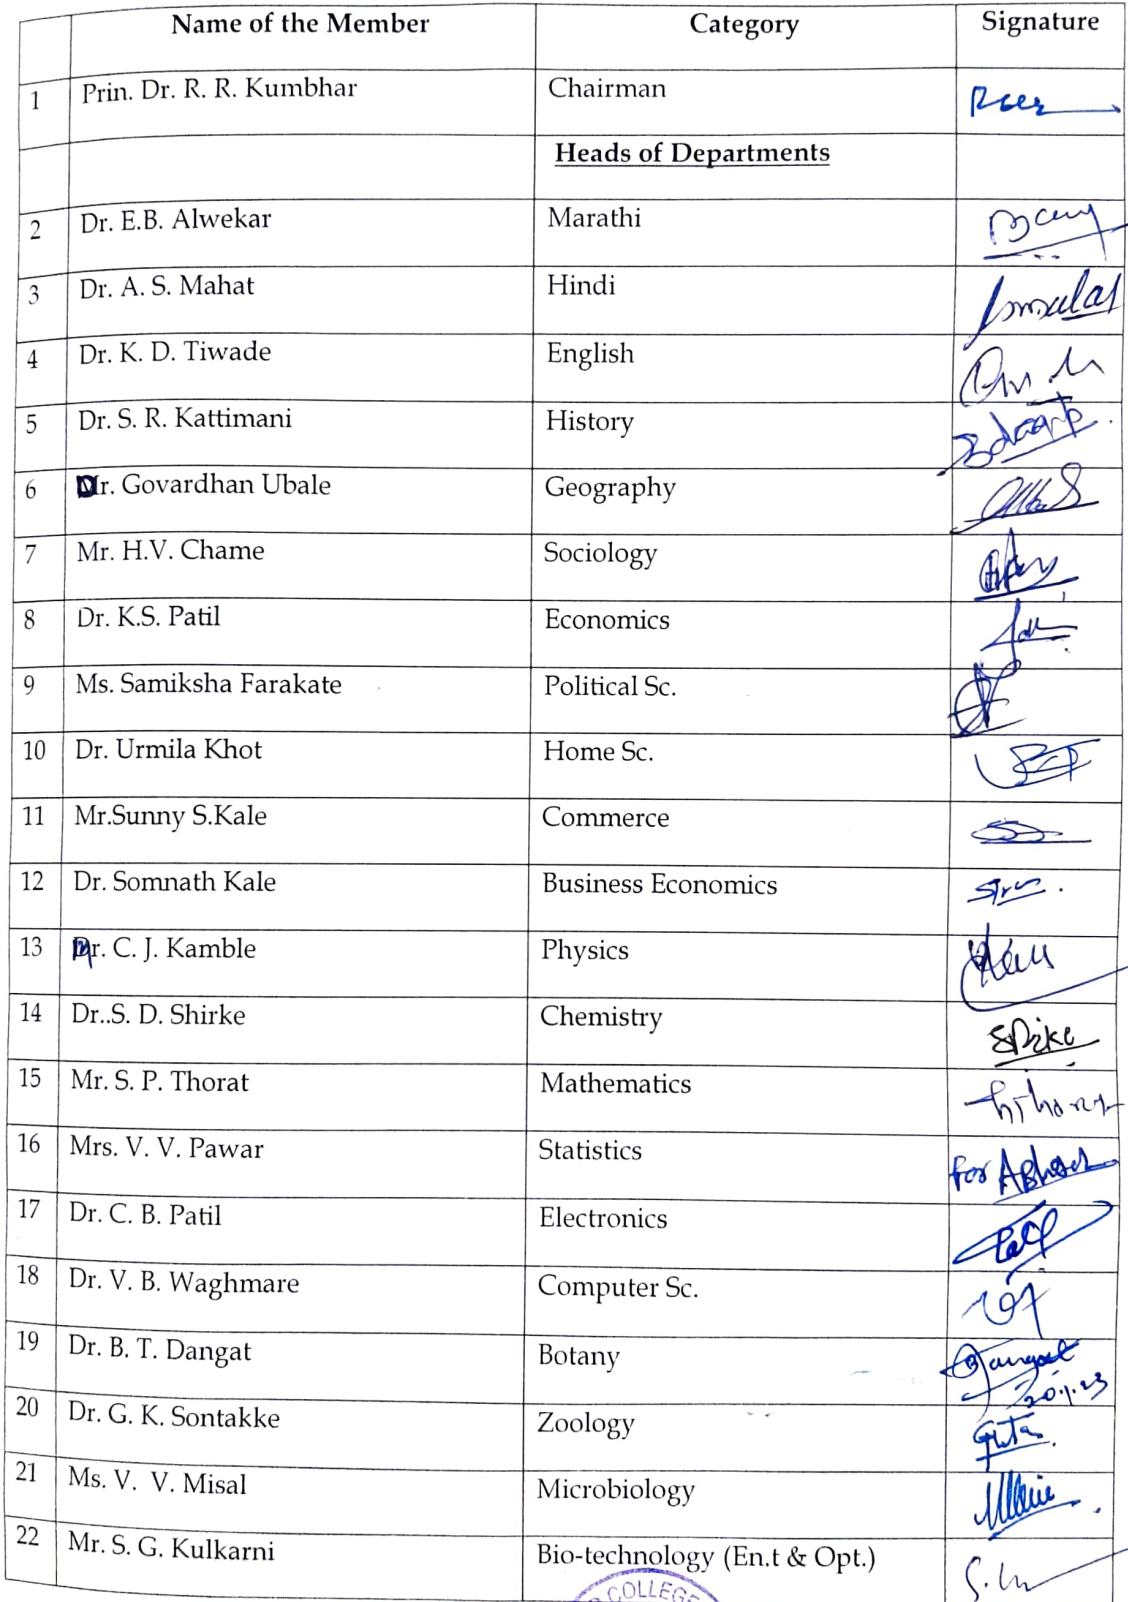 Name of the Member Category Signature
1 Prin. Dr. R. R. Kumbhar Chairman
Heads of Departments
2 Dr. E.B. Alwekar Marathi
3 Dr. A. S. Mahat Hindi
4 Dr. K. D. Tiwade English
5 Dr. S. R. Kattimani History
6 Dr. Govardhan Ubale Geography
7 Mr. H.V. Chame Sociology
8 Dr. K.S. Patil Economics
9 Ms. Samiksha Farakate Political Sc.
10 Dr. Urmila Khot Home Sc.
11 Mr.Sunny S.Kale Commerce
12 Dr. Somnath Kale Business Economics
13 Mr. C. J. Kamble Physics
14 Dr..S. D. Shirke Chemistry
15 Mr. S. P. Thorat Mathematics
16 Mrs. V. V. Pawar Statistics For
17 Dr. C. B. Patil Electronics
18 Dr. V. B. Waghmare Computer Sc.
19 Dr. B. T. Dangat Botany Dangat
20.1.23
20 Dr. G. K. Sontakke Zoology
21 Ms. V. V. Misal Microbiology
22 Mr. S. G. Kulkarni Bio-technology (En.t & Opt.)
COLLEGE